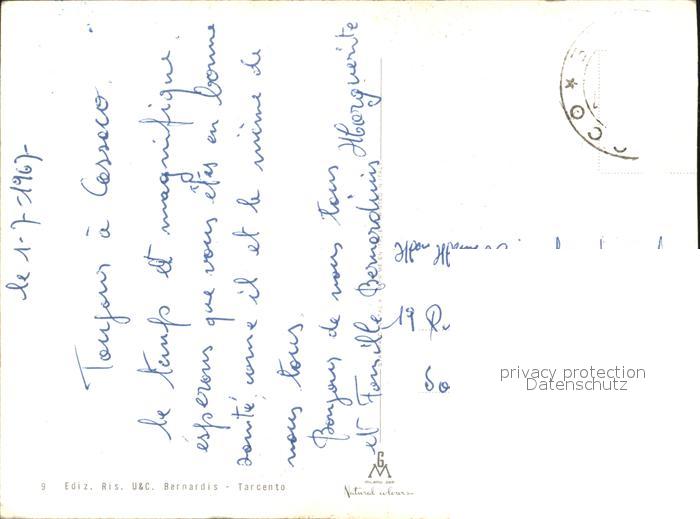 le 1-7-1967
Toujours à Cassaco.
le temps et magnifique.
ésperons que vous êtes en bonne
santé, come il et le même de
nous tous.
Bonjour de nous tous
et Famille Bernardinis Marguerite
19 R.
privacy protection
Datenschutz
GM
MILANO
Natural colours
9 Ediz. Ris. U&C. Bernardis - Tarcento